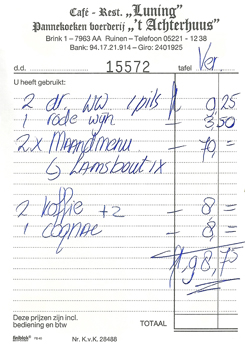 Café - Rest. „Luning"
Pannekoeken boerderij „'t Achterhuus"
Brink 1 – 7963 AA Ruinen – Telefoon 05221 - 1238
Bank: 94.17.21.914 – Giro: 2401925
d.d. 15572 tafel Ver.
U heeft gebruikt:
2 dr. WW 1 pils 9,25
1 rode wijn 3,50
2 x Maandmenu - 70 =
↳ Lamsbout 1x
2 koffie +2 - 8 =
1 cognac - 8 =
98,75
Deze prijzen zijn incl.
bediening en btw
TOTAAL
Nr. K.v.K. 28488